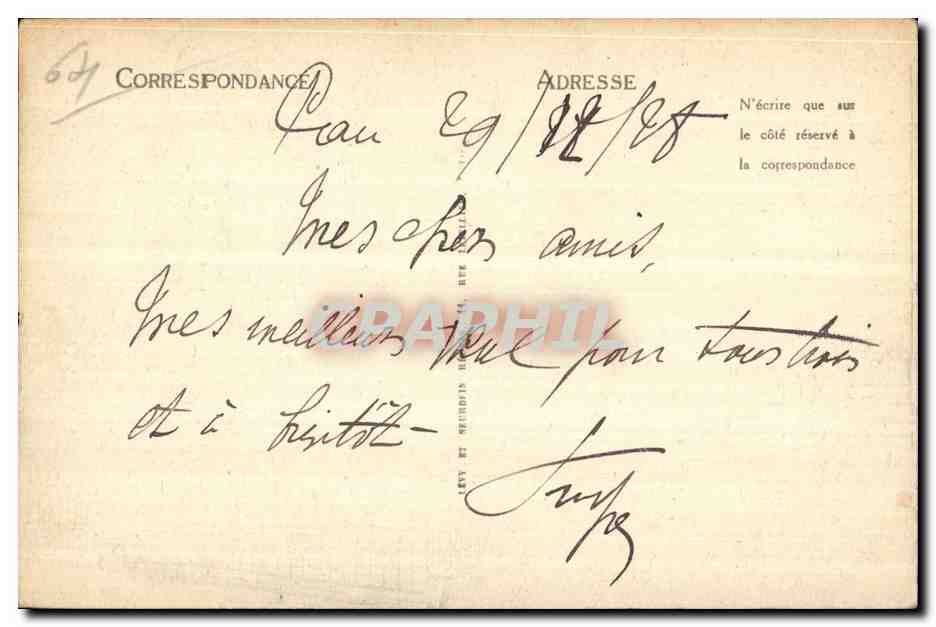 64
CORRESPONDANCE
ADRESSE
N'écrire que sur
le côté réservé à
la correspondance
Pau 29/12/28
Mes chers amis,
Mes meilleurs vœux pour tous trois
et à bientôt –
LÉVY ET NEURDEIN RÉUNIS, 44, RUE LETELLIER
CPAPHIL